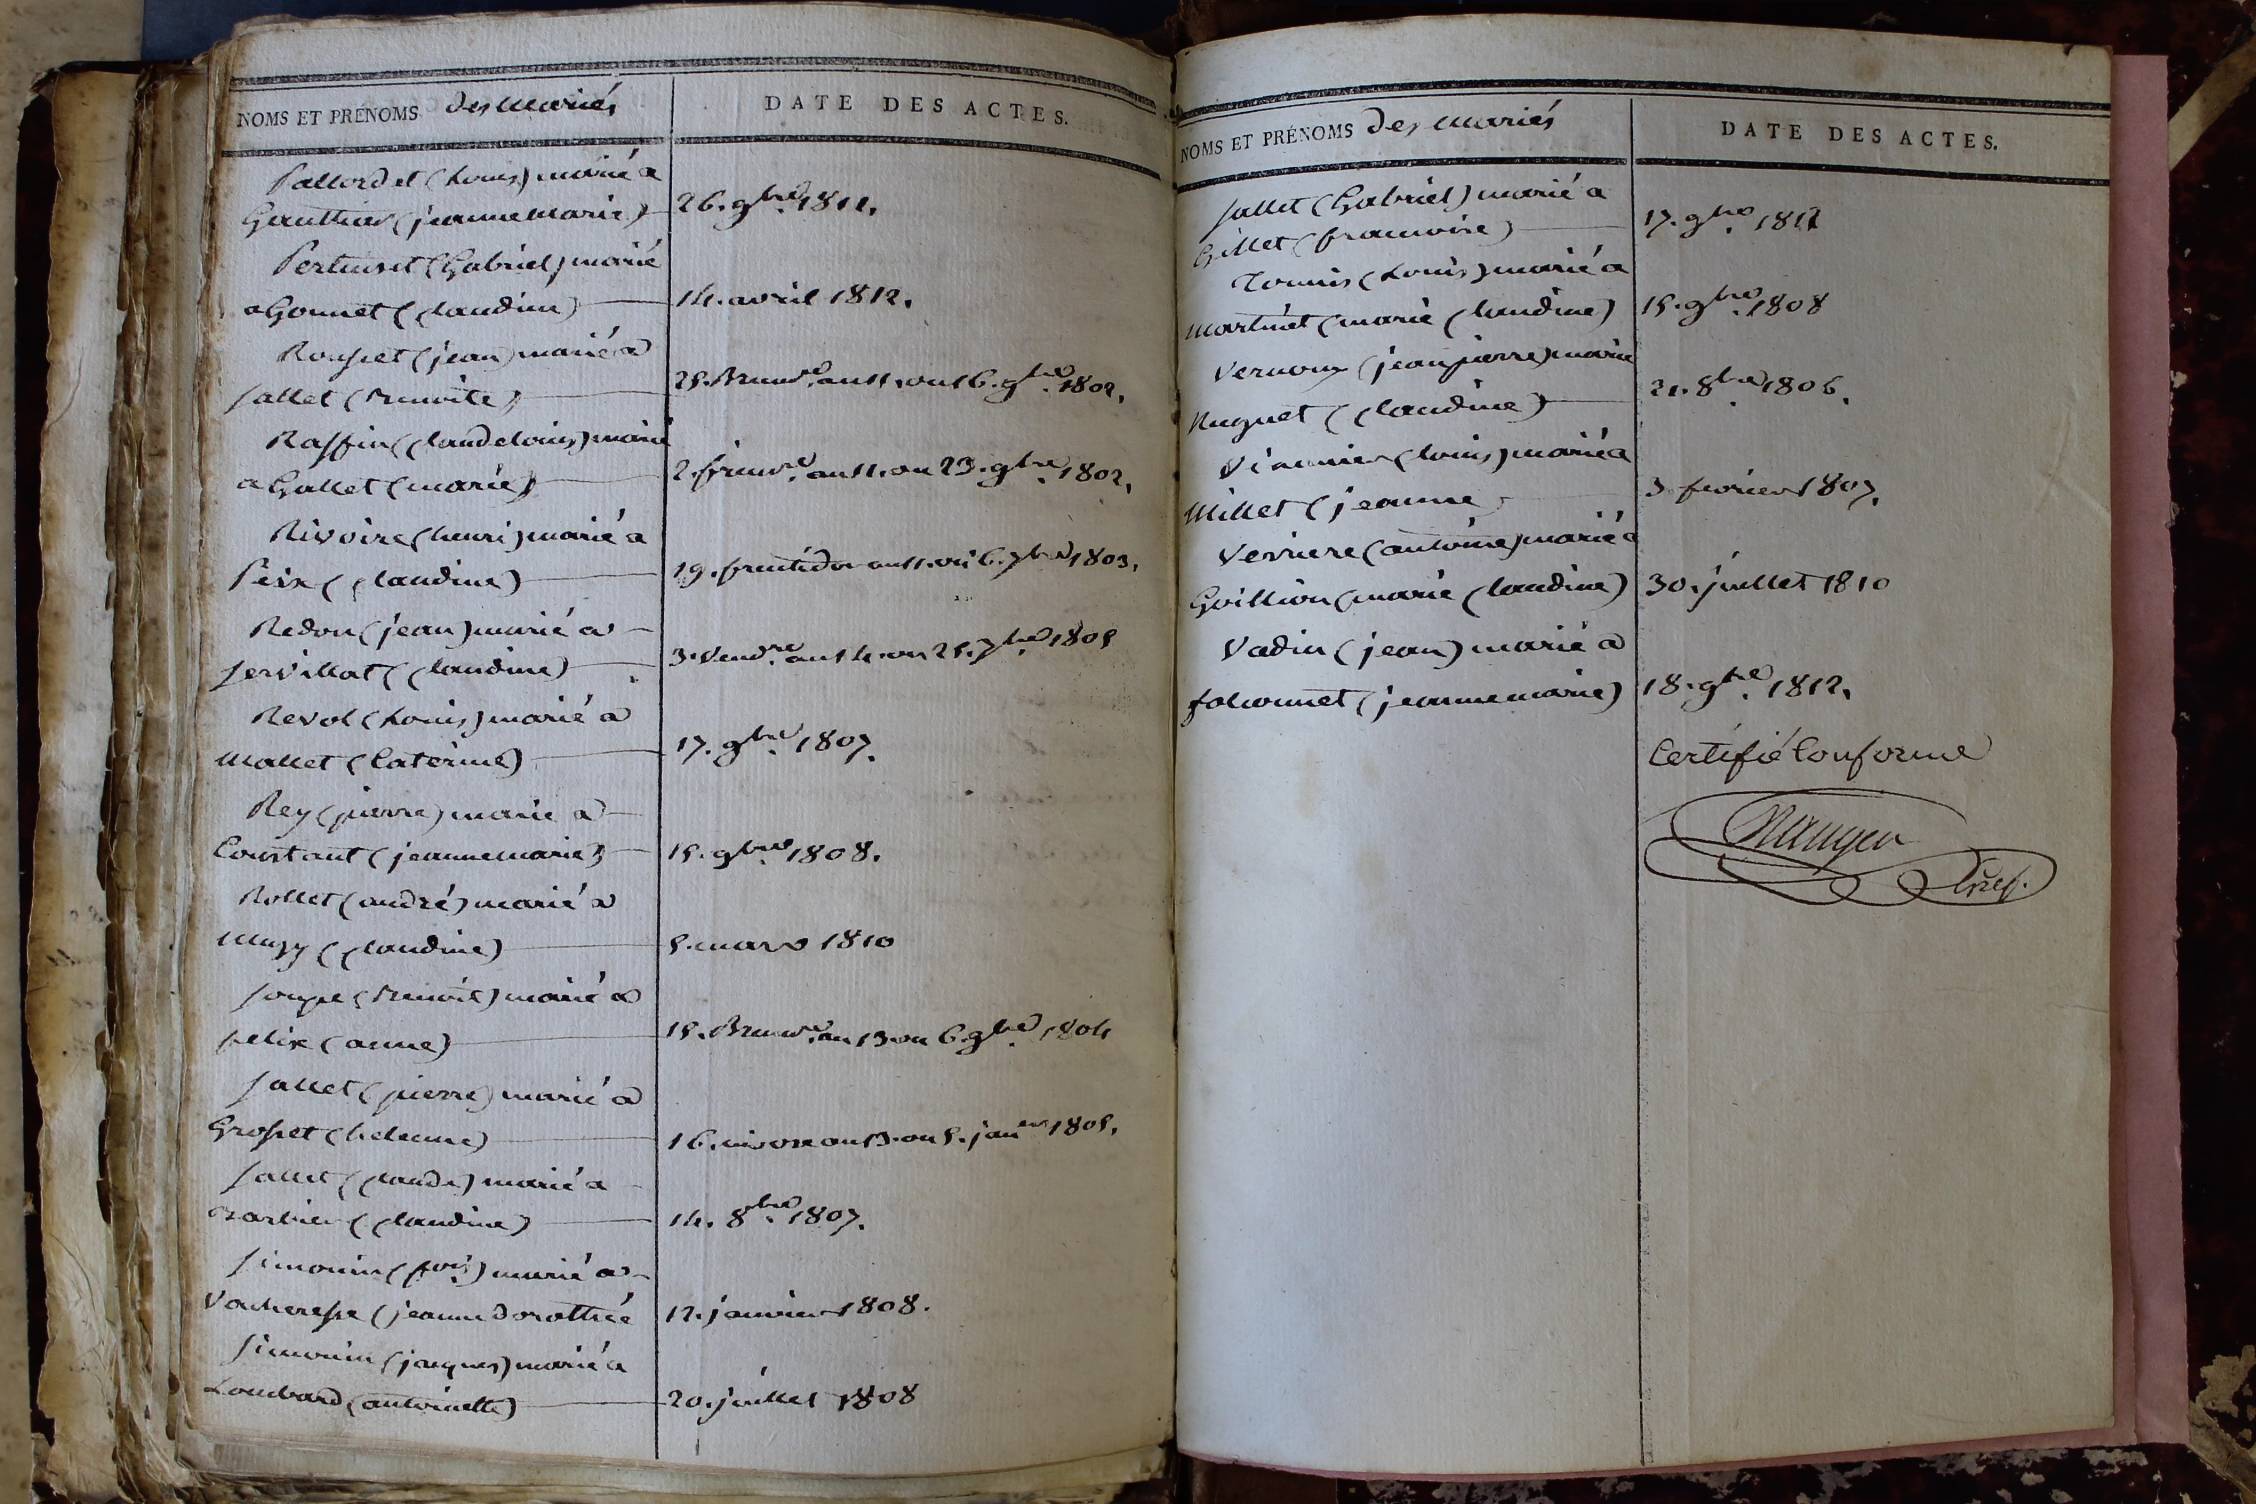 NOMS ET PRÉNOMS des Mariés
DATE DES ACTES.
Pallordet (Louis) marié a
Gauthier (jeanne Marie)
26. 9bre 1811.
Pertuiset (Gabriel) marié
a Gonnet (Claudine)
14. avril 1812.
Rousset (jean) marié a
Sallet (Benoite)
25. Brumre an 11. ou 16. 9bre 1802.
Raffin (Claude Louis) marié
a Gallet (marie)
2. frimre an 11. ou 23. 9bre 1802.
Rivoire (henri) marié a
Peix (Claudine)
19. fructidor an 11. ou 6. 7bre 1803.
Redon (jean) marié a
Servillat (Claudine)
3. Vendre an 14. ou 25. 7bre 1805
Revol (Louis) marié a
Mallet (Caterine)
17. 9bre 1807.
Rey (pierre) marié a
Constant (jeanne marie)
15. 9bre 1808.
Rollet (andré) marié a
Muzy (Claudine)
5. mars 1810
Soupe (Benoit) marié a
felix (anne)
15. Brumre an 13 ou 6. 9bre 1804
Sallet (pierre) marié a
Grosset (helenne)
16. nivose an 13. ou 5. janer 1805.
Sallet (Claude) marié a
Barbier (Claudine)
14. 8bre 1807.
Simonin (fois) marié a
Vacheresse (jeanne dorothée
12. janvier 1808.
Simonin (jacques) marié a
Lombard (antoinette)
20. juillet 1808
NOMS ET PRÉNOMS des mariés
DATE DES ACTES.
Sallet (Gabriel) marié a
Gillet (francoise)
17. 9bre 1812
Tonnis (Louis) marié a
Martinet (marie Claudine)
15. 9bre 1808
Vernoux (jean pierre) marié
Nuguet (Claudine)
21. 8bre 1806.
Viannier (Louis) marié a
Millet (jeanne
3 fevrier 1807.
Verriere (antoine) marié a
Goillion (marie Claudine)
30. juillet 1810
Vadin (jean) marié a
falconnet (jeanne marie)
18. 9bre 1812.
Certifié Conforme